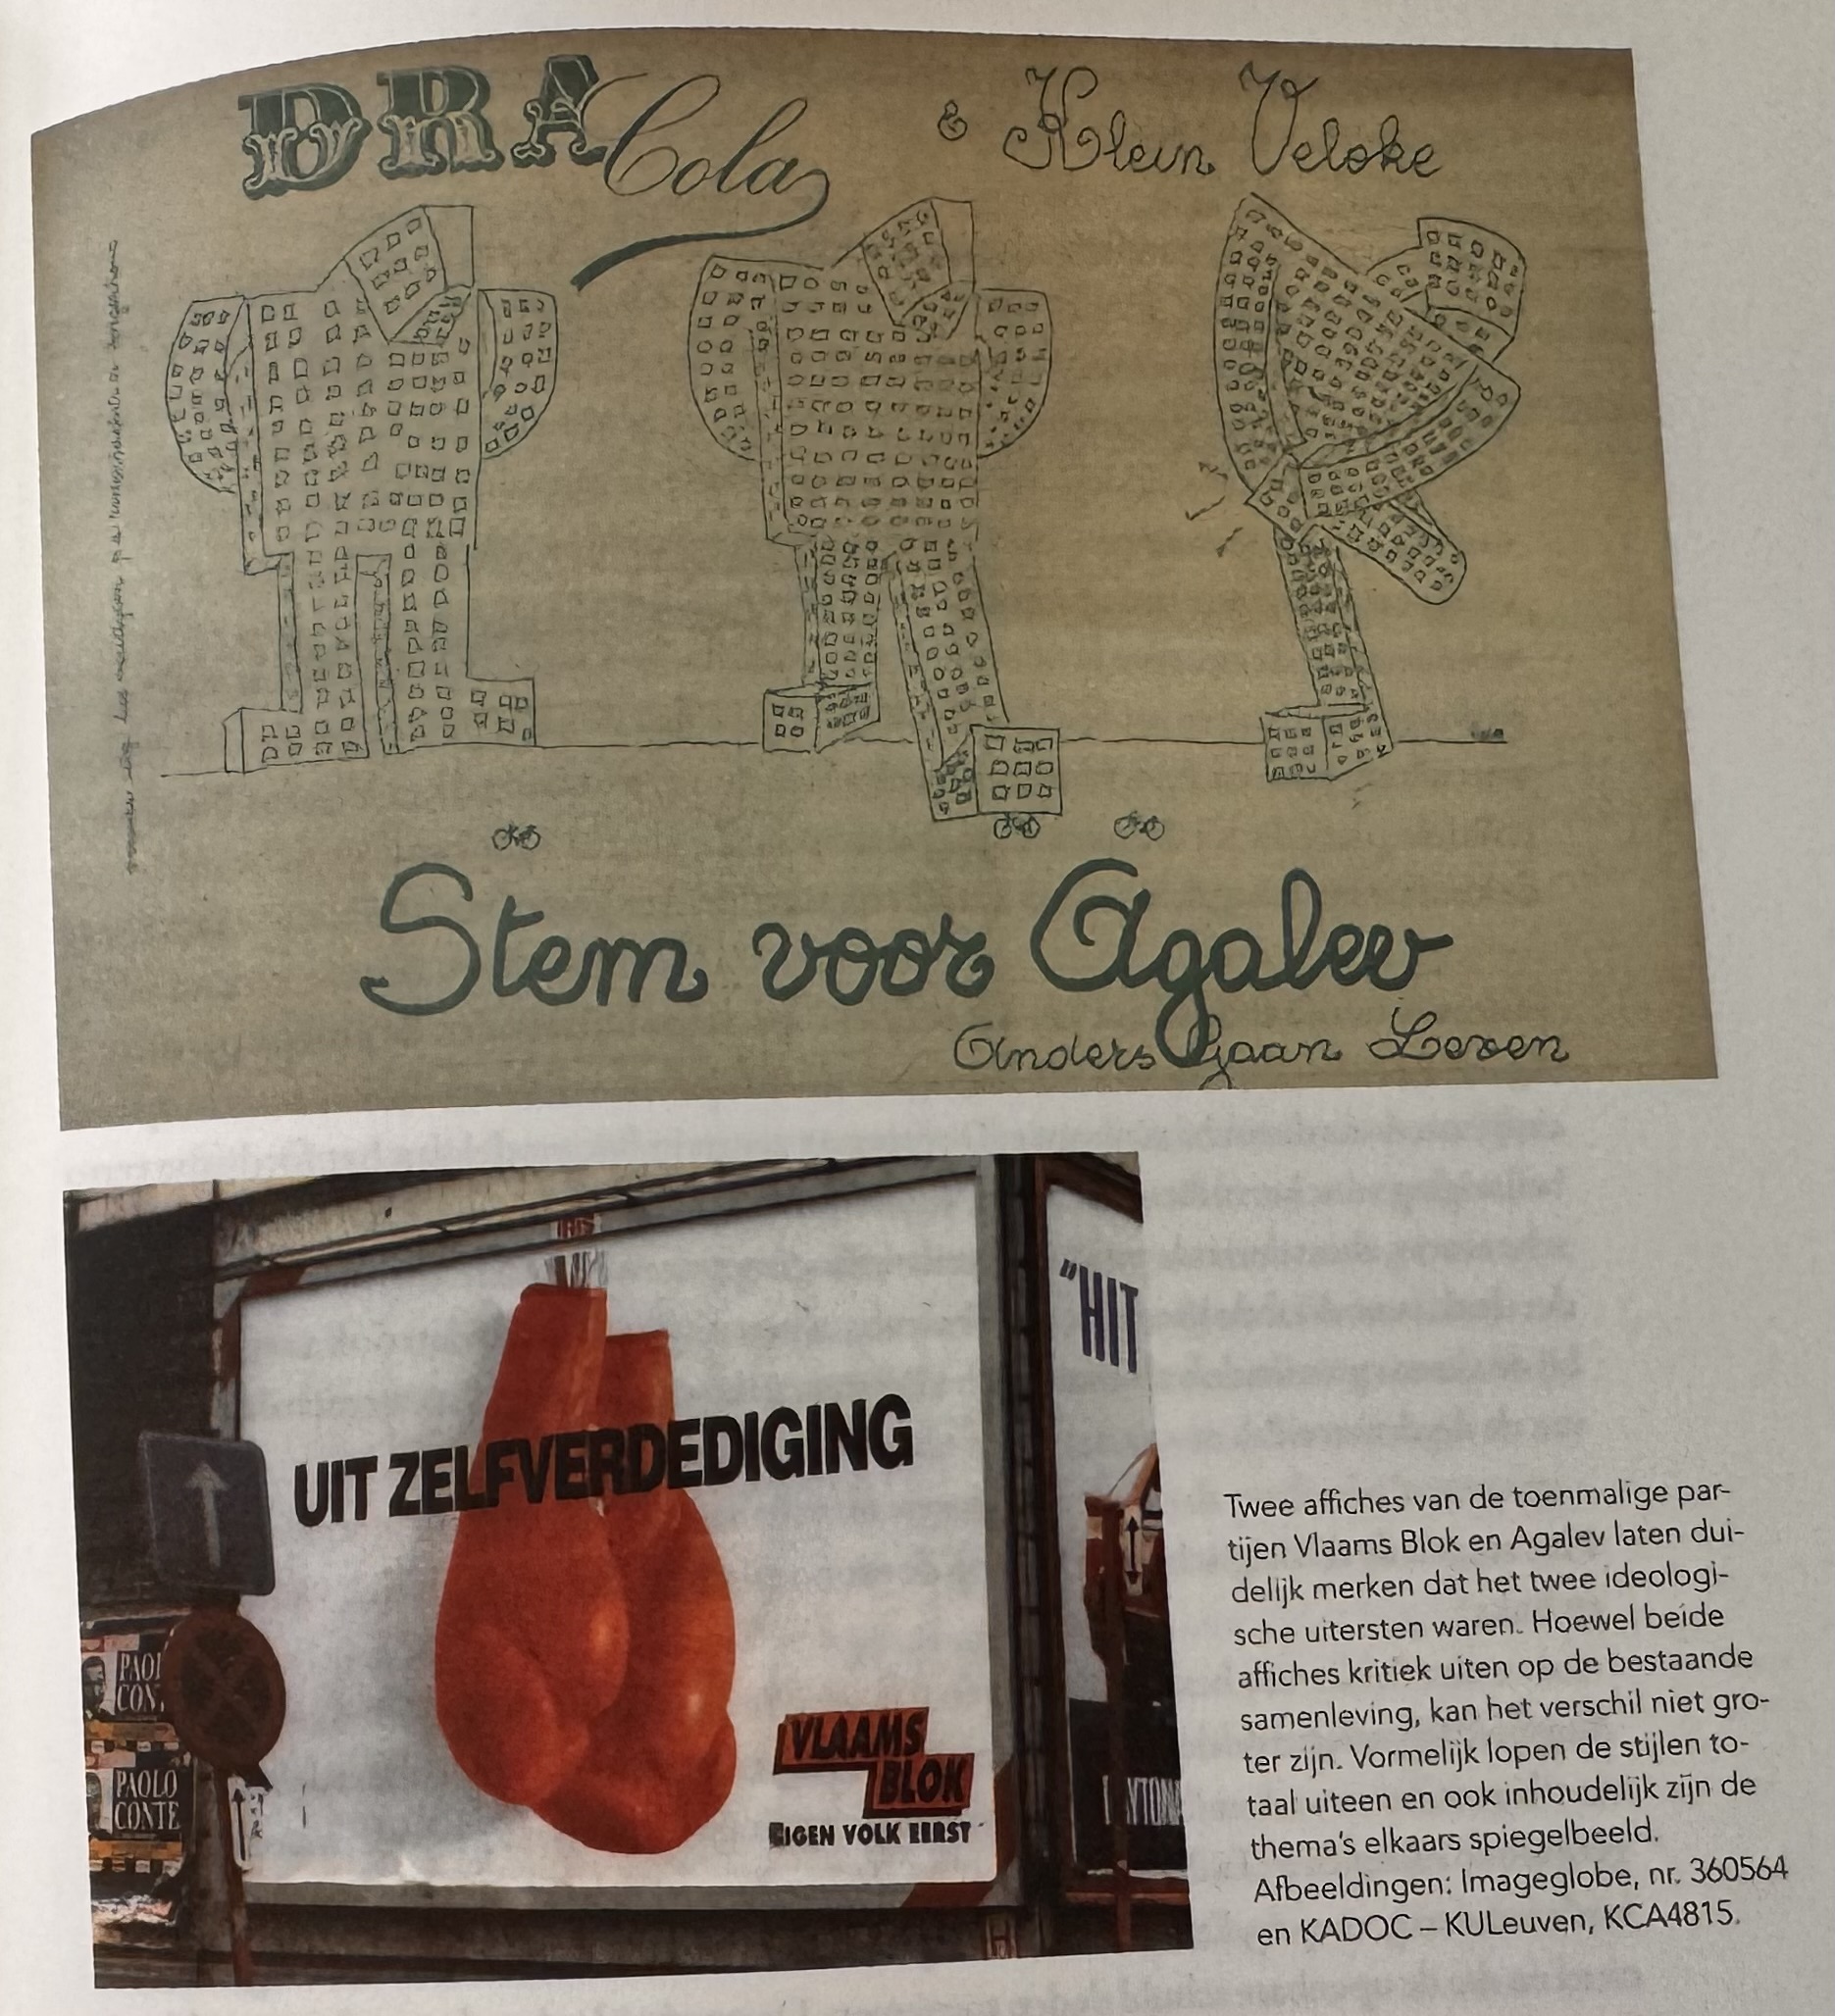 DRA Cola & Klein Veloke
Stem voor Agalev
Anders Gaan Leven
UIT ZELFVERDEDIGING
VLAAMS
BLOK
EIGEN VOLK EERST
"HIT
PAOLO
CONTE
Twee affiches van de toenmalige par-
tijen Vlaams Blok en Agalev laten dui-
delijk merken dat het twee ideologi-
sche uitersten waren. Hoewel beide
affiches kritiek uiten op de bestaande
samenleving, kan het verschil niet gro-
ter zijn. Vormelijk lopen de stijlen to-
taal uiteen en ook inhoudelijk zijn de
thema's elkaars spiegelbeeld.
Afbeeldingen: Imageglobe, nr. 360564
en KADOC – KULeuven, KCA4815.